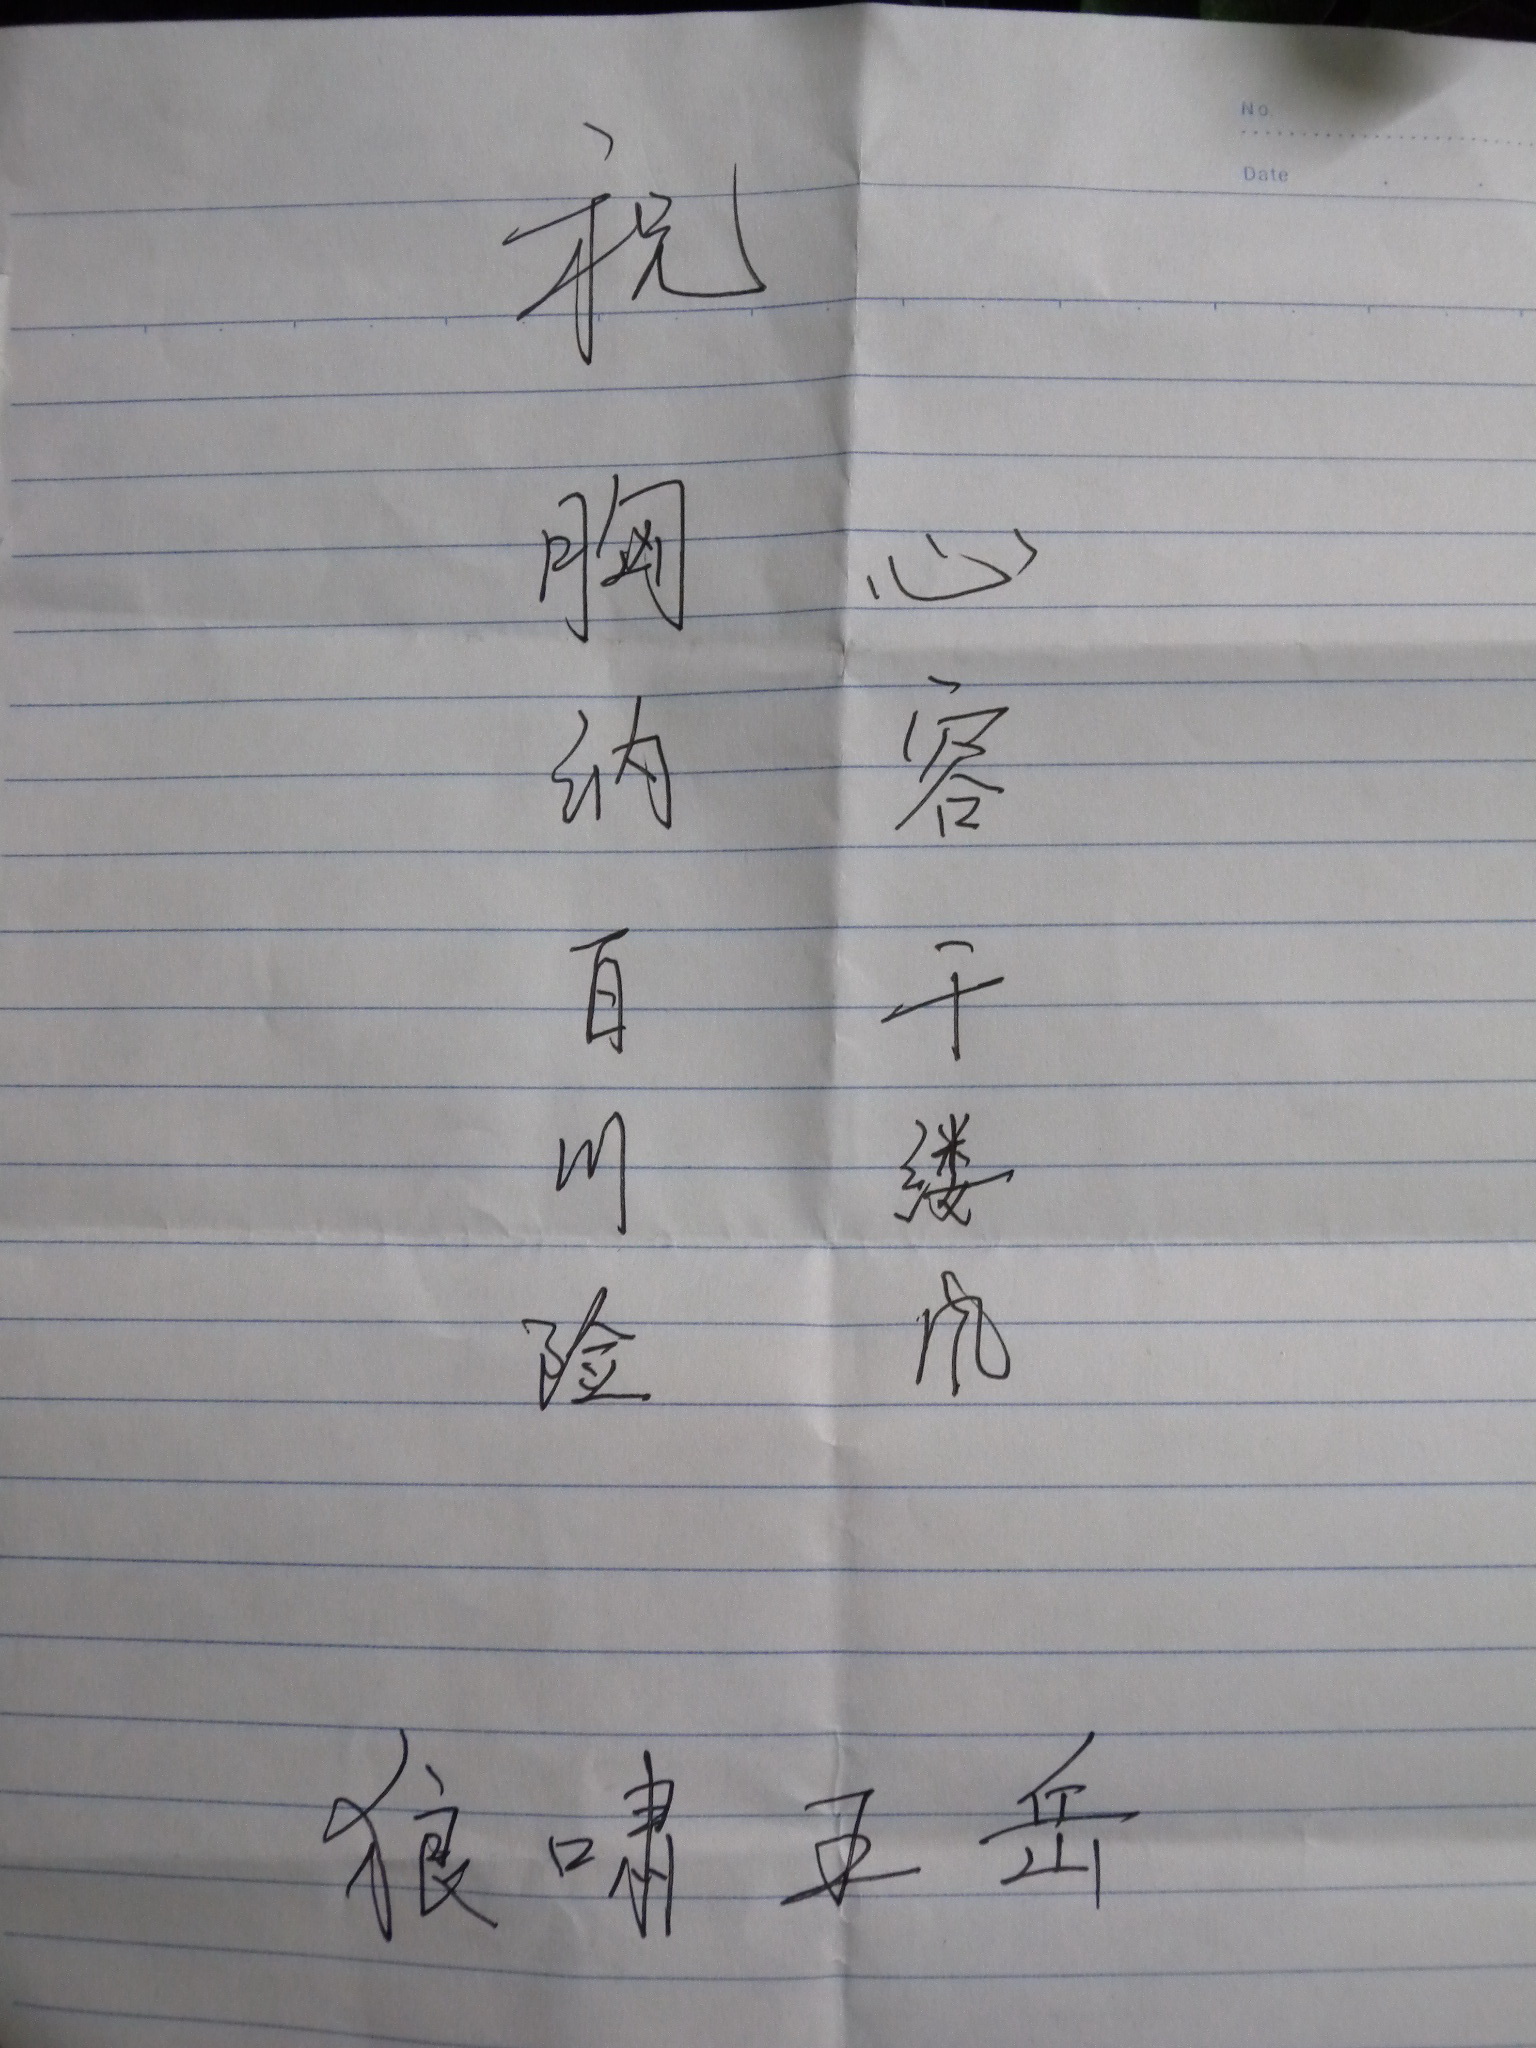 No
Date
祝
胸纳百川险
心容千缕风
狼啸五岳